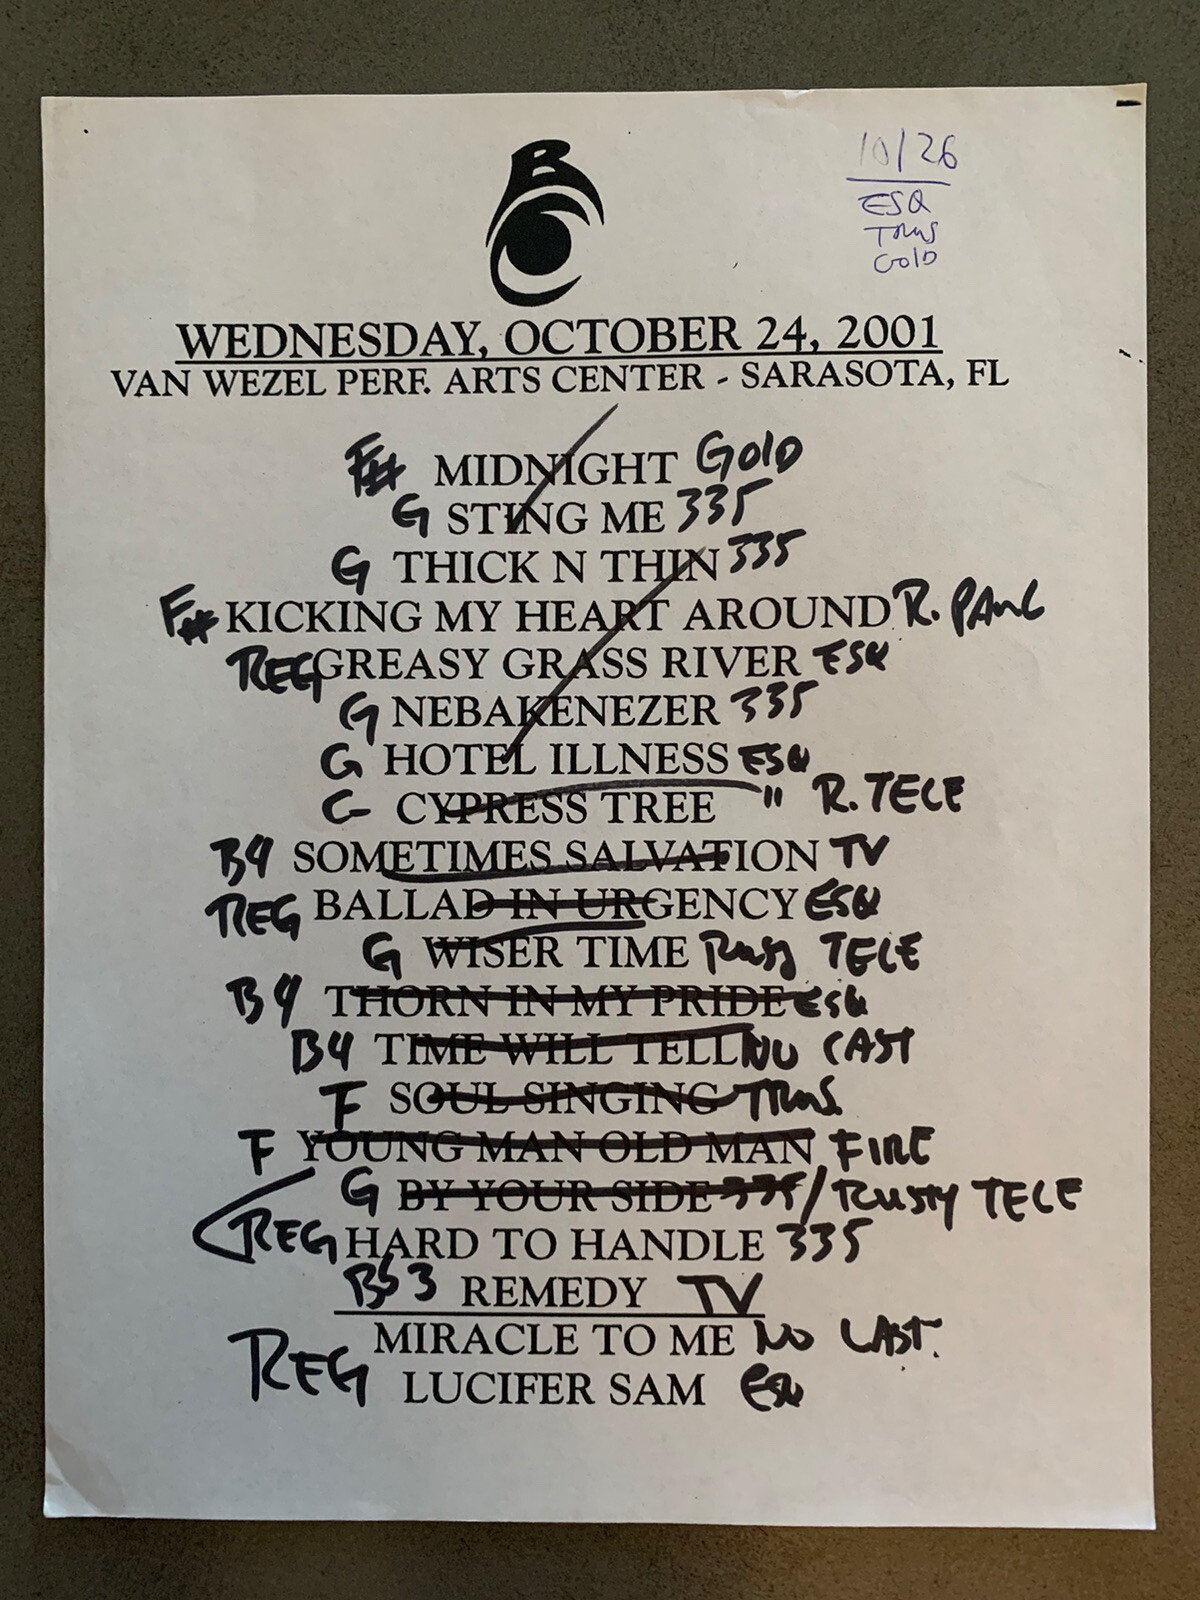 B
10/26
ESQ
Gold
WEDNESDAY, OCTOBER 24, 2001
VAN WEZEL PERF. ARTS CENTER - SARASOTA, FL
F# MIDNIGHT Gold
G STING ME 335
G THICK N THIN 335
F# KICKING MY HEART AROUND R. PAUL
REG GREASY GRASS RIVER ESQ
G NEBAKENEZER 335
G HOTEL ILLNESS ESQ
G CYPRESS TREE " R. TELE
B4 SOMETIMES SALVATION TV
REG BALLAD IN URGENCY ESQ
G WISER TIME Rusty TELE
B4 THORN IN MY PRIDE ESQ
B4 TIME WILL TELL NO CAST
F SOUL SINGING
F YOUNG MAN OLD MAN FIRE
G BY YOUR SIDE 335 / RUSTY TELE
REG HARD TO HANDLE 335
REMEDY TV
MIRACLE TO ME NO CAST.
REG LUCIFER SAM ESQ